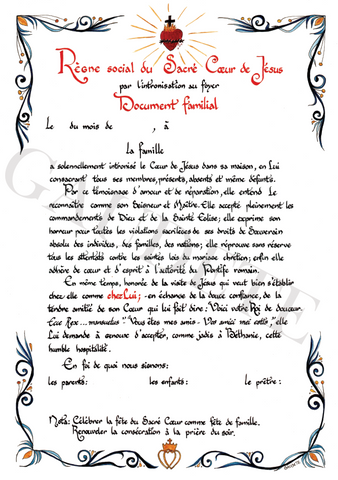 Règne social du Sacré Cœur de Jésus
par l'intronisation au foyer
Document familial
Le du mois de , à
La famille
a solennellement intronisé le Cœur de Jésus dans sa maison, en Lui
consacrant tous ses membres, présents, absents et même défunts.
Par ce témoignage d'amour et de réparation, elle entend Le
reconnaître comme son Seigneur et Maître. Elle accepte pleinement les
commandements de Dieu et de la Sainte Eglise; elle exprime son
horreur pour toutes les violations sacrilèges de ses droits de Souverain
absolu des individus, des familles, des nations; elle réprouve sans réserve
tous les attentats contre les saintes lois du mariage chrétien; enfin elle
adhère de cœur et d'esprit à l'autorité du Pontife romain.
En même temps, honorée de la visite de Jésus qui veut bien s'établir
chez elle comme chez Lui; - en échange de la douce confiance, de la
tendre amitié de son Cœur qui lui fait dire: "Voici votre Roi de douceur -
Ecce Rex... mansuetus" "Vous êtes mes amis - Vos amici mei estis," elle
Lui demande à genoux d'accepter, comme jadis à Béthanie, cette
humble hospitalité.
En foi de quoi nous signons:
les parents: les enfants: le prêtre:
Nota: Célébrer la fête du Sacré Cœur comme fête de famille.
Renouveler la consécration à la prière du soir.